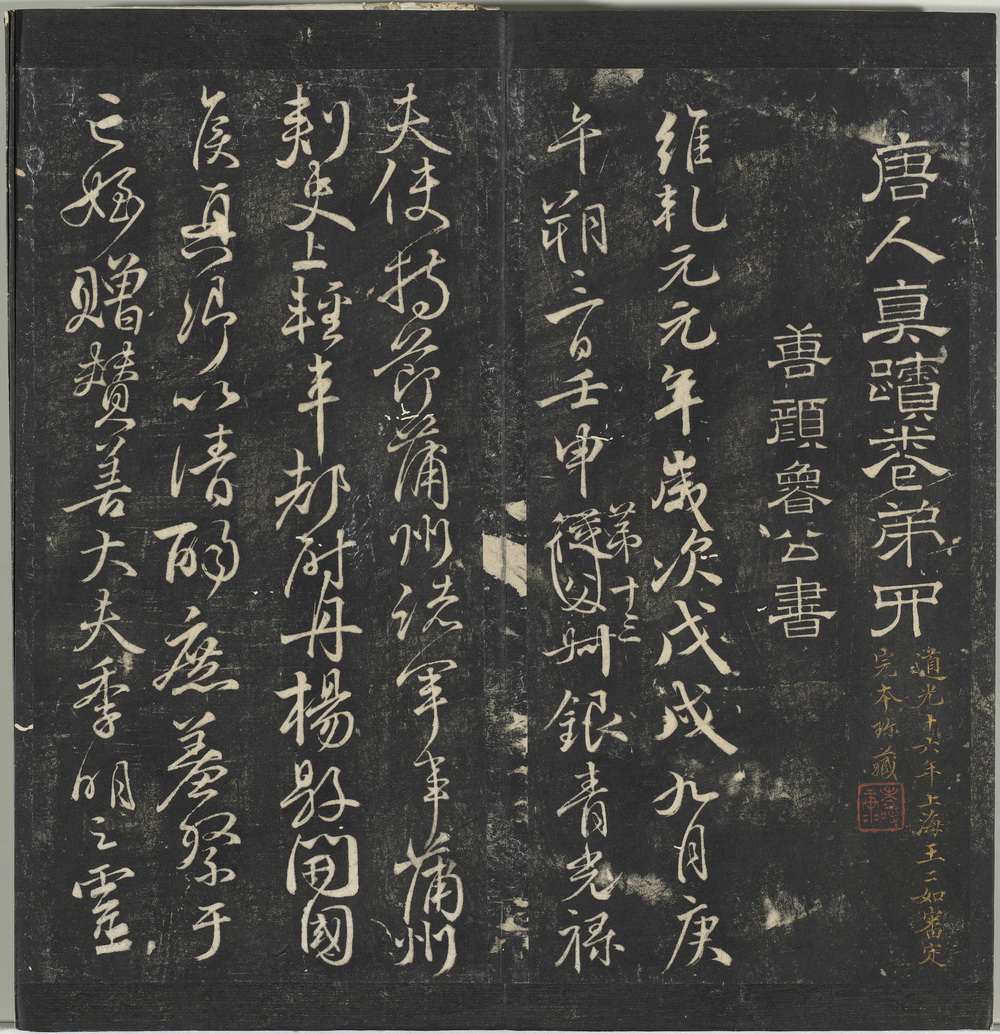 唐人真蹟卷弟四
道光十六年上海王二如審定
完本珍藏
善顏魯公書
維乾元元年歲次戊戌九月庚
午朔三日壬申第十三從父叔銀青光祿
夫使持節蒲州諸軍事蒲州
刺史上輕車都尉丹楊縣開國
侯真卿以清酌庶羞祭于
亡姪贈贊善大夫季明之靈